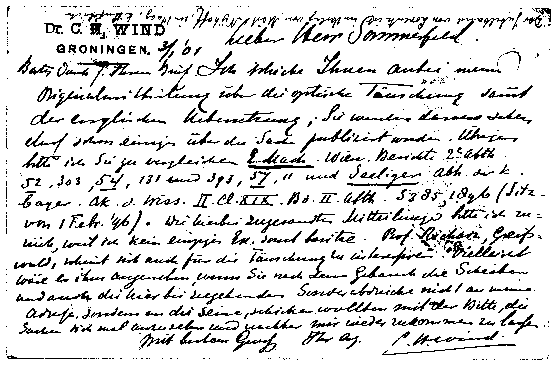 Dr. C. H. WIND
GRONINGEN. 3/1 01
Lieber Herr Sommerfeld.
Besten Dank f. Ihren Brief. Ich schicke Ihnen anbei meine
Originalmittheilung über die optische Täuschung samt
der englischen Uebersetzung; Sie werden daraus sehen
darf schon einiges über die Sache publiziert worden. Übrigens
bitte ich Sie zu vergleichen E. Mach, Wien. Berichte 2e Abth.
52, 303, 54, 131 und 393, 57, 11 und Seeliger Abh. d. k.
Bayer. Ak. d. Wiss. II Cl. XIX. Bd. II Abth. S 385, 1896 (Sitz.
von 1 Febr. '96). Die hierbei zugesandten Mitteilungen bitte ich zu-
rück, weil ich kein einziges Ex. sonst besitze. Prof. Richarz, Greifs-
wald, scheint sich auch für die Täuschung zu interessieren. Vielleicht
wäre es ihm angenehm, wenn Sie nach Ihrem Gebrauch die Scheiben
und auch die hierbei zugehenden Sonderabdrücke nicht an meine
Adresse, sondern an die Seine, schicken wollten mit der Bitte, die
Sachen sich mal anzusehen und nachher mir wieder zukommen zu lassen.
Mit bestem Gruss Ihr erg. C. H. Wind.